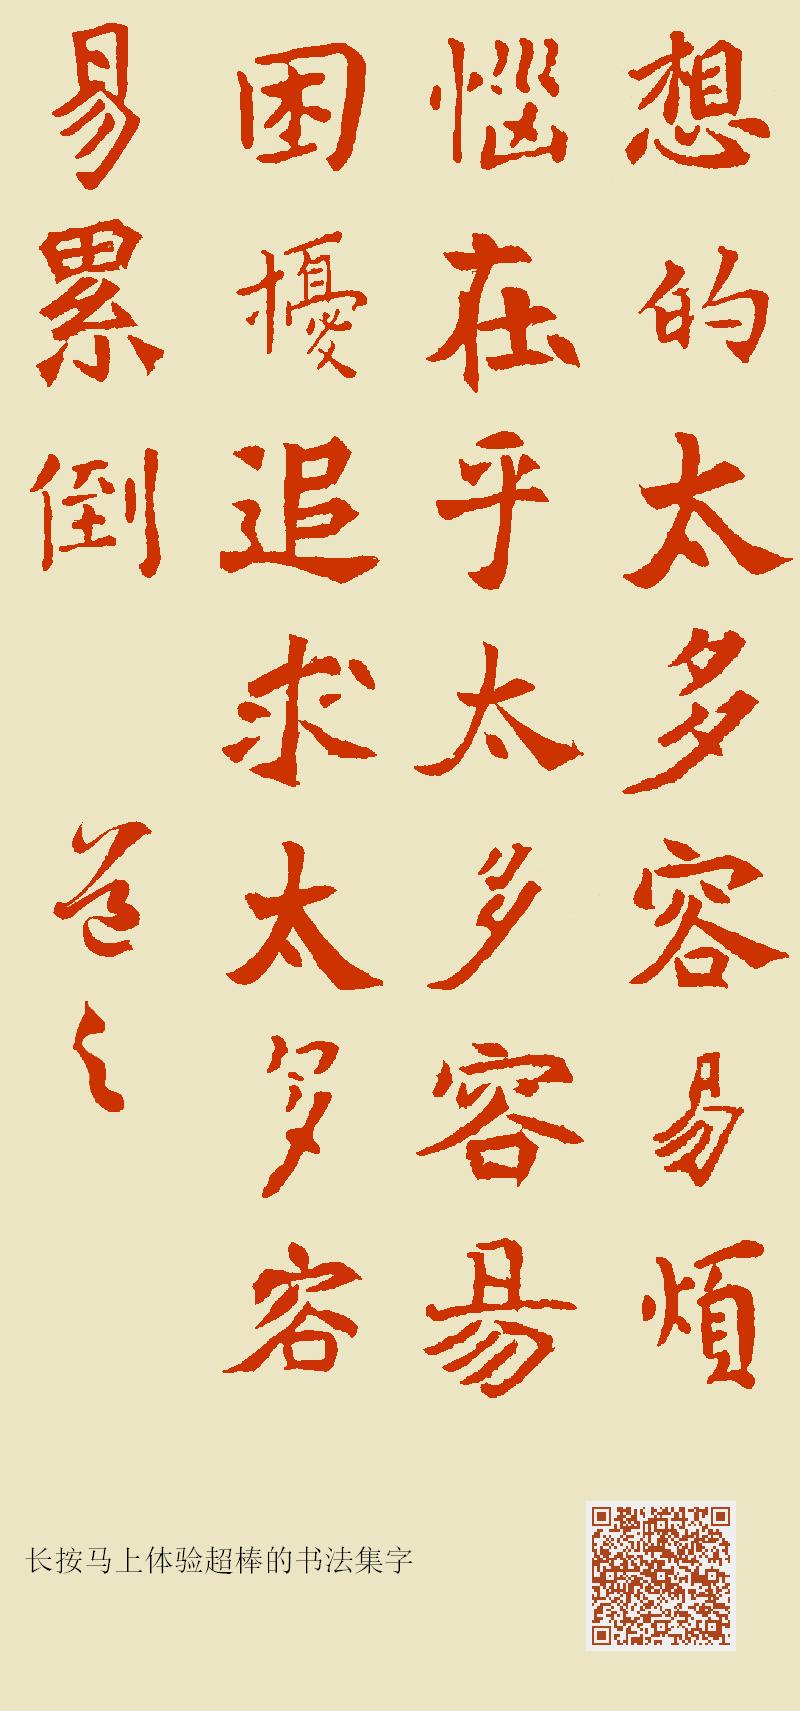 想的太多容易煩
惱在乎太多容易
困擾追求太多容
易累倒
長按马上体验超棒的书法集字